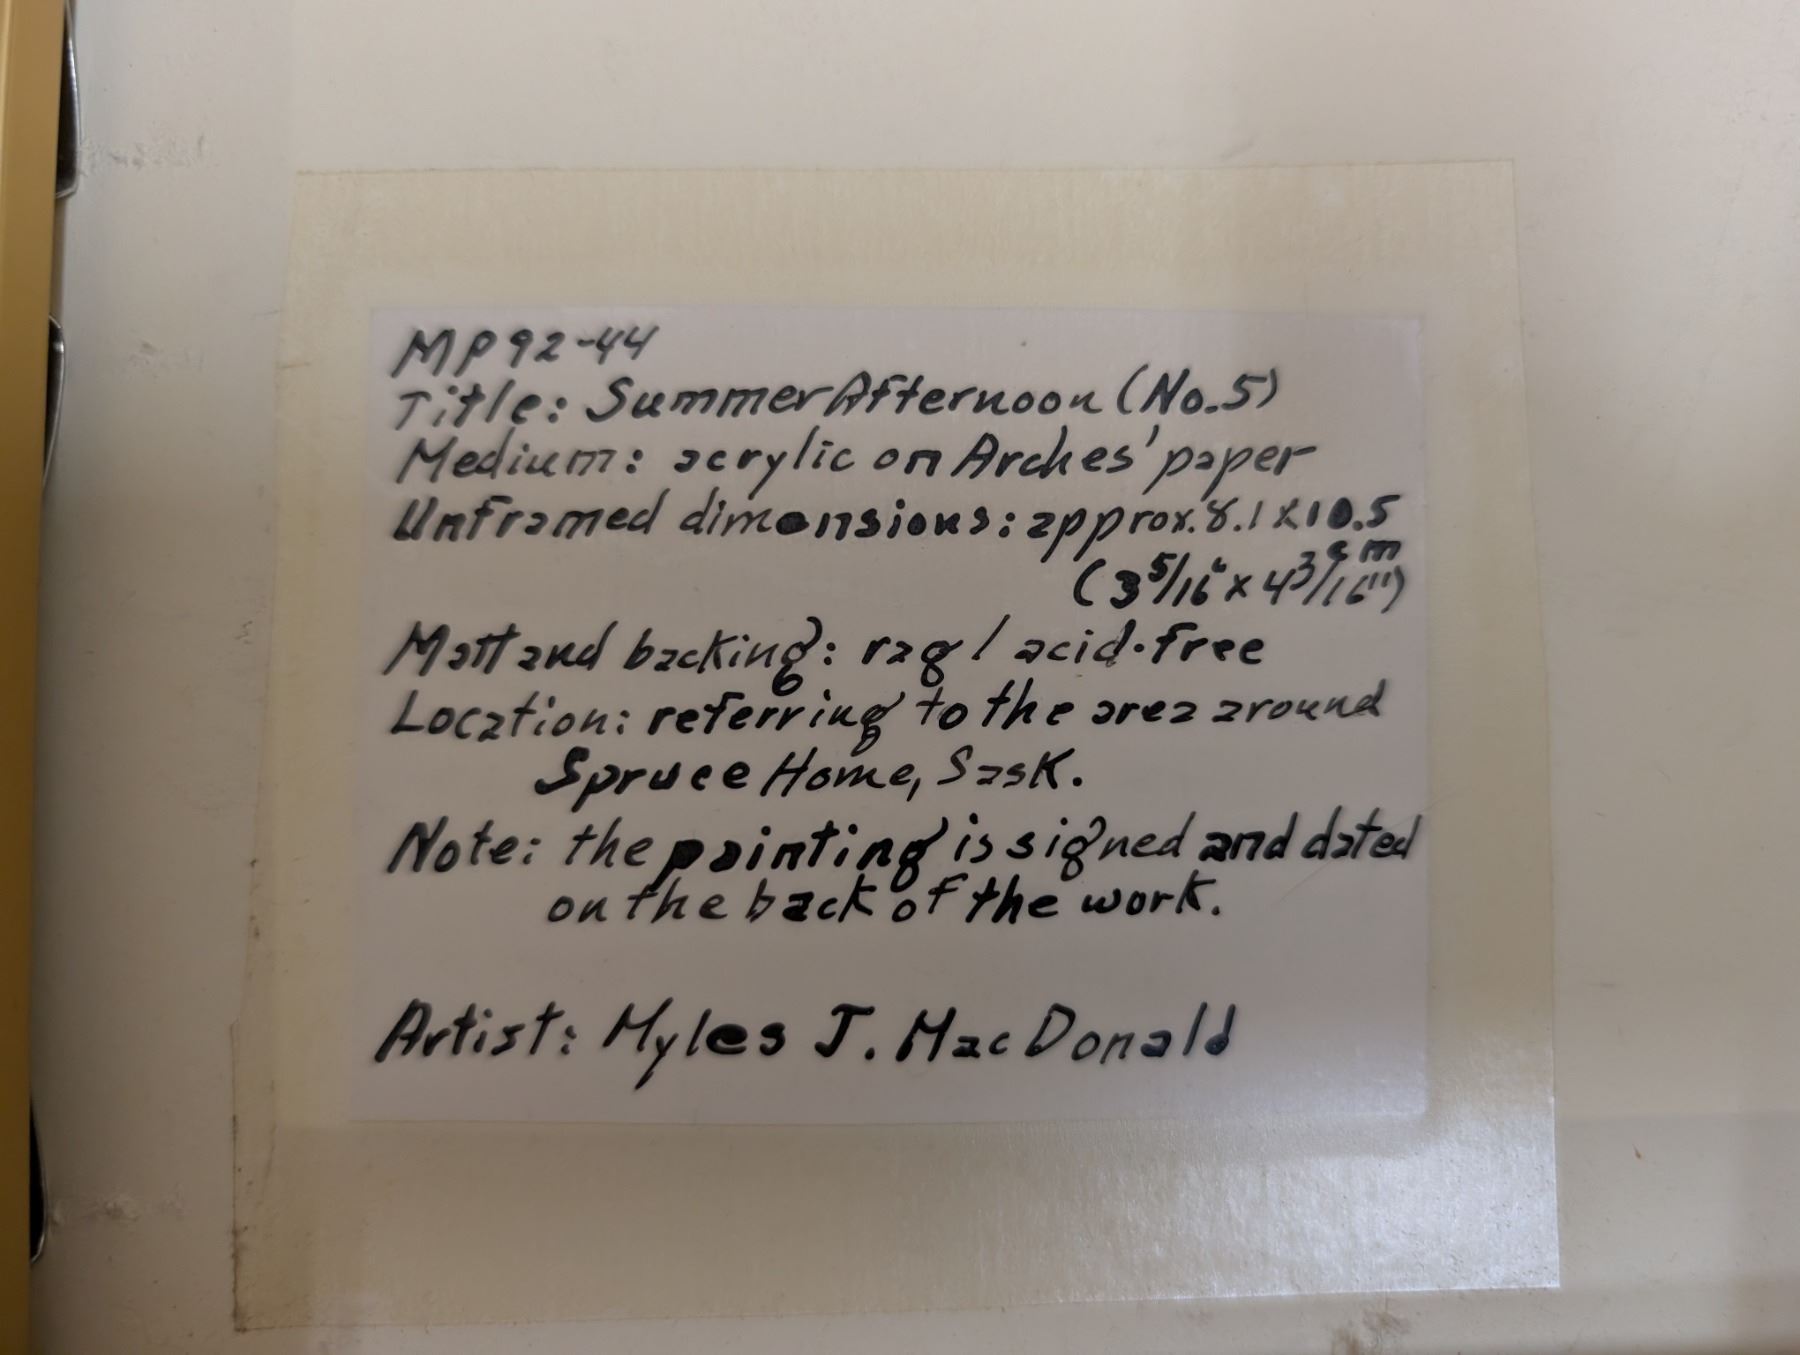 MP92-44
Title: Summer Afternoon (No.5)
Medium: acrylic on Arches' paper
Unframed dimensions: approx. 8.1 x 10.5
cm
(3 5/16" x 4 3/16")
Matt and backing: rag / acid-free
Location: referring to the area around
Spruce Home, Sask.
Note: the painting is signed and dated
on the back of the work.
Artist: Myles J. MacDonald